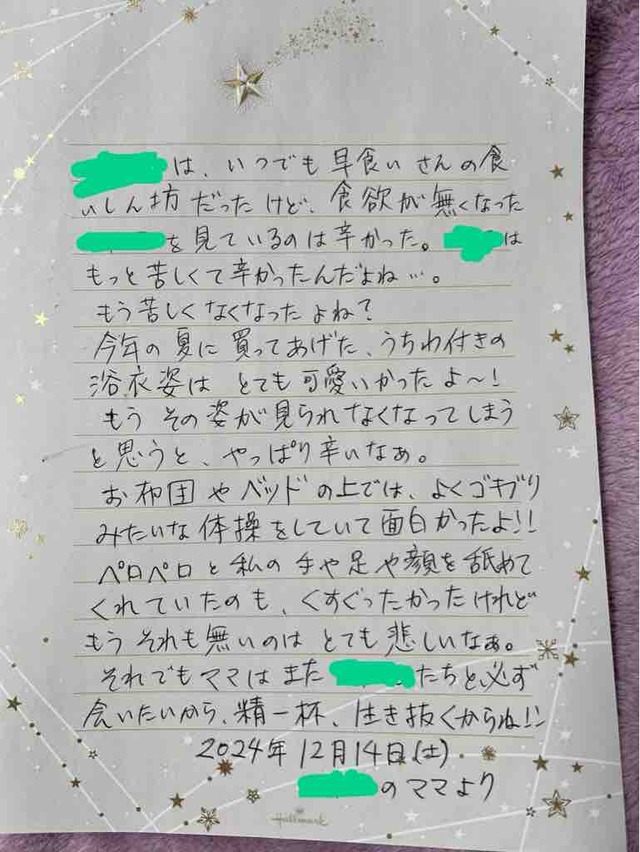 は、いつでも早食いさんの食
いしん坊だったけど、食欲が無くなった
を見ているのは辛かった。は
もっと苦しくて辛かったんだよね…。
もう苦しくなくなったよね?
今年の夏に買ってあげた、うちわ付きの
浴衣姿はとても可愛いかったよ〜!
もうその姿が見られなくなってしまう
と思うと、やっぱり辛いなぁ。
お布団やベッドの上では、よくゴキブリ
みたいな体操をしていて面白かったよ!!
ペロペロと私の手や足や顔を舐めて
くれていたのも、くすぐったかったけれど
もうそれも無いのはとても悲しいなぁ。
それでもママはまたたちと必ず
会いたいから、精一杯、生き抜くからね!!
2024年12月14日(土)
のママより
Hallmark